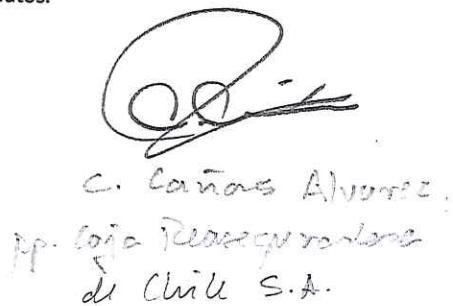 C. Cañas Alvarez.
pp. Caja Reaseguradora
de Chile S.A.